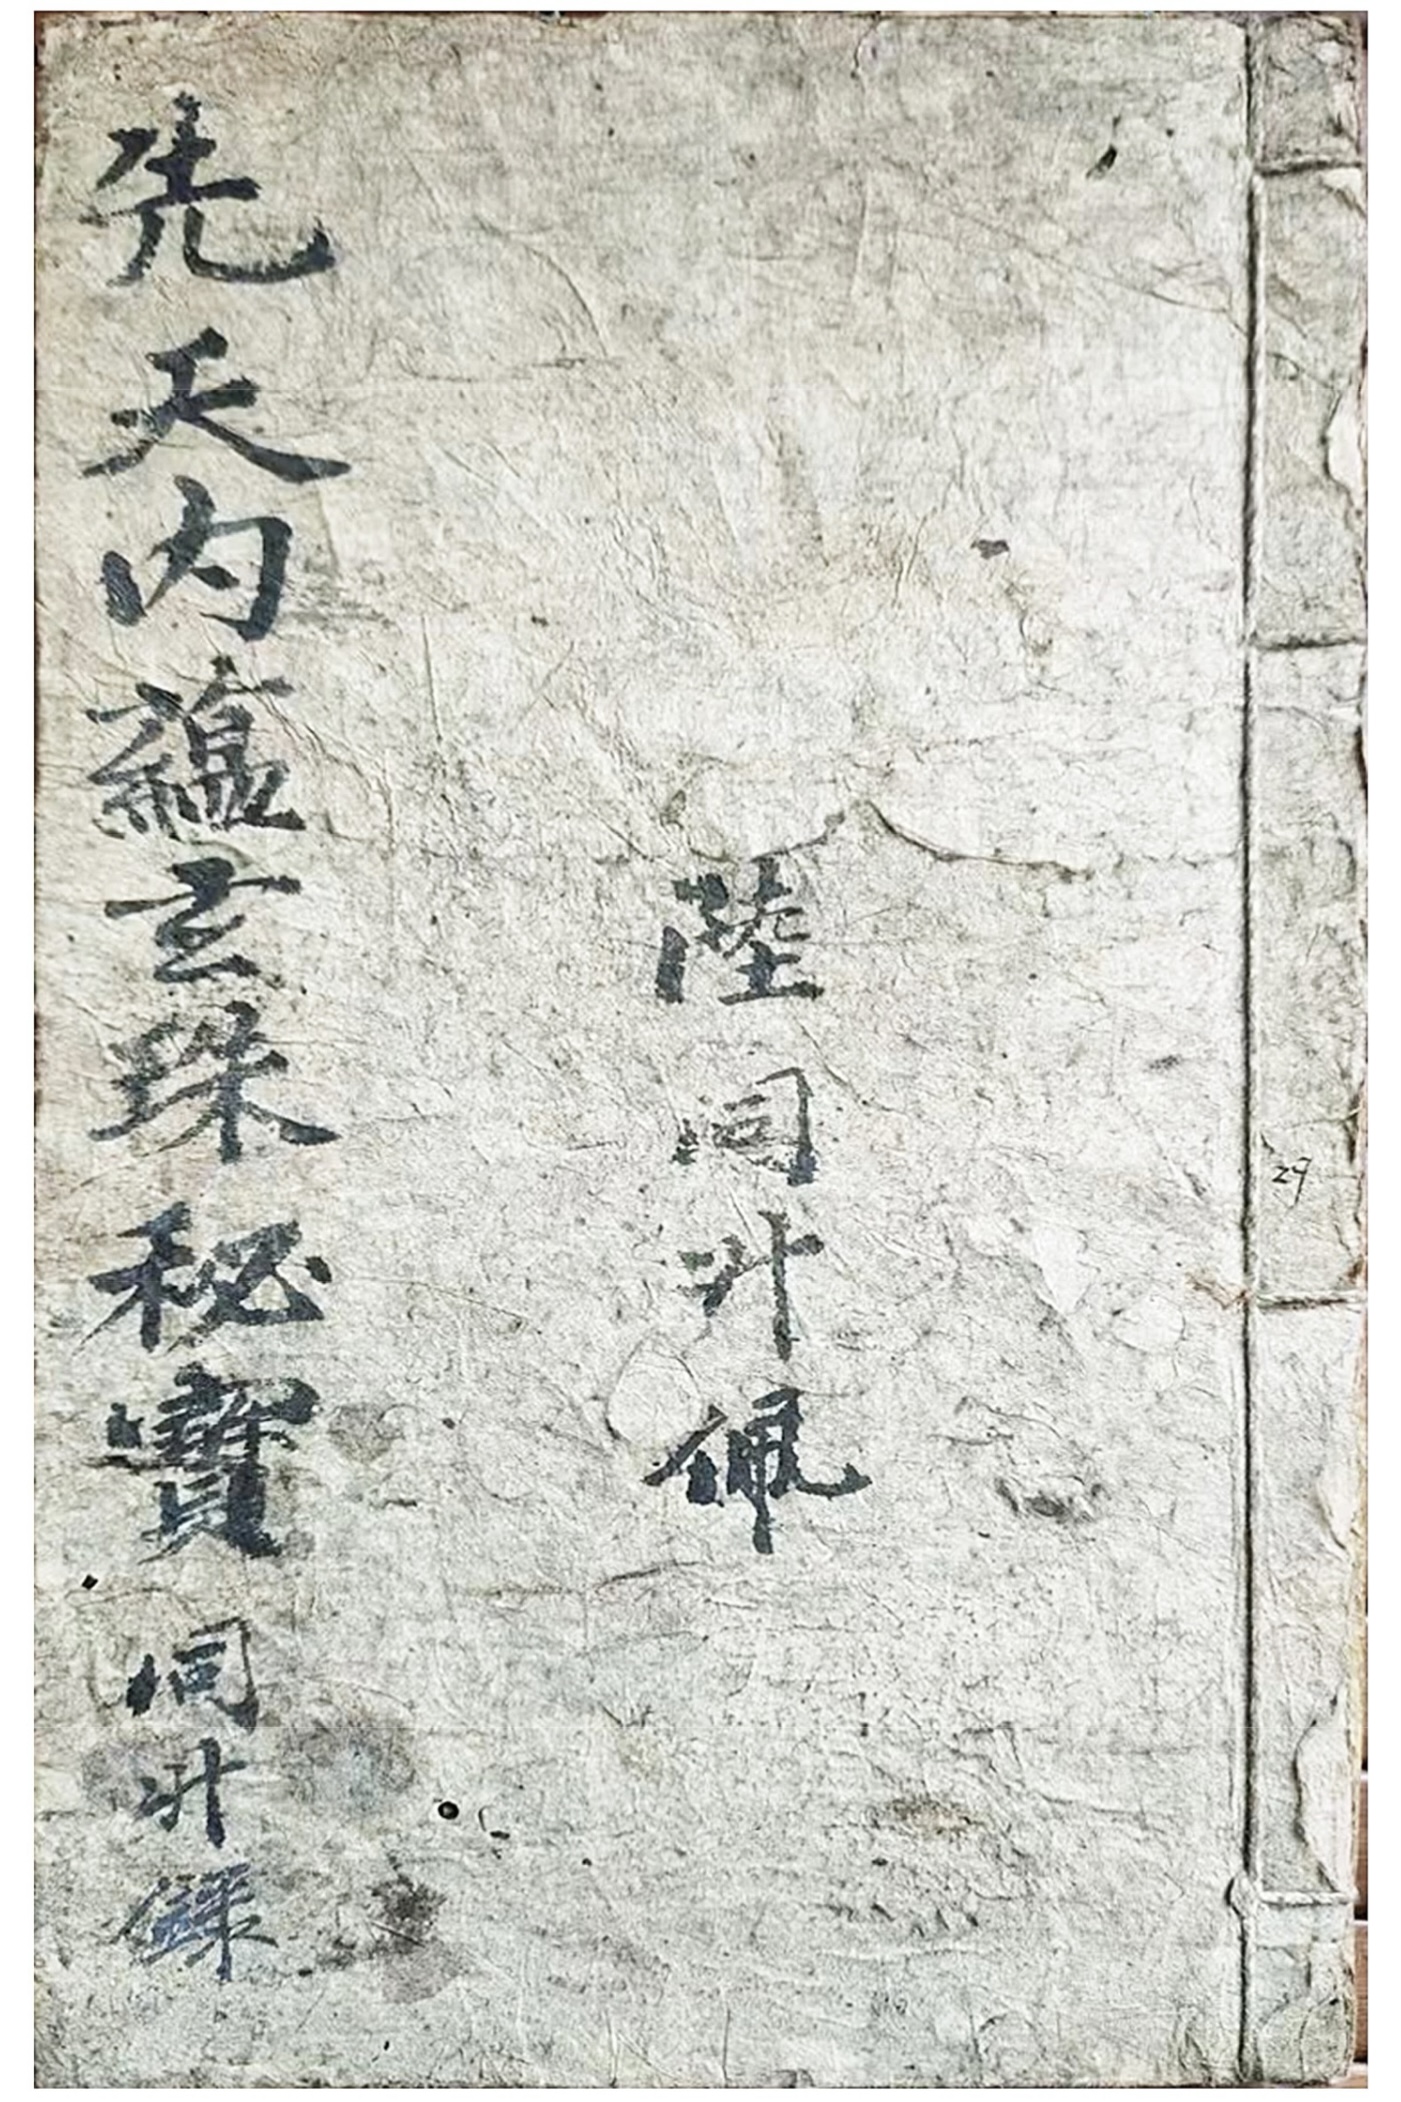 29
陸同升佩
先天内蘊玄珠秘寶同升錄